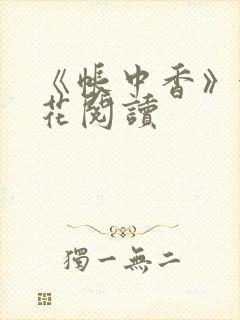 《帳中香》
花閱讀
獨一無二